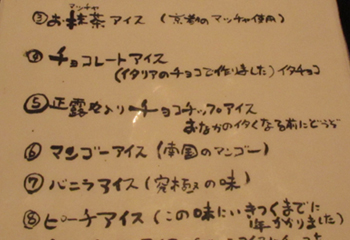 マッチャ
③お抹茶アイス (京都のマッチャ使用)
④チョコレートアイス
(イタリアのチョコで作りました)イタチョコ
⑤正露丸入りチョコチップアイス
おなかのイタくなる前にどうぞ
⑥マンゴーアイス(南国のマンゴー)
⑦バニラアイス(究極の味)
⑧ピーチアイス(この味にいきつくまでに
1年かかりました)